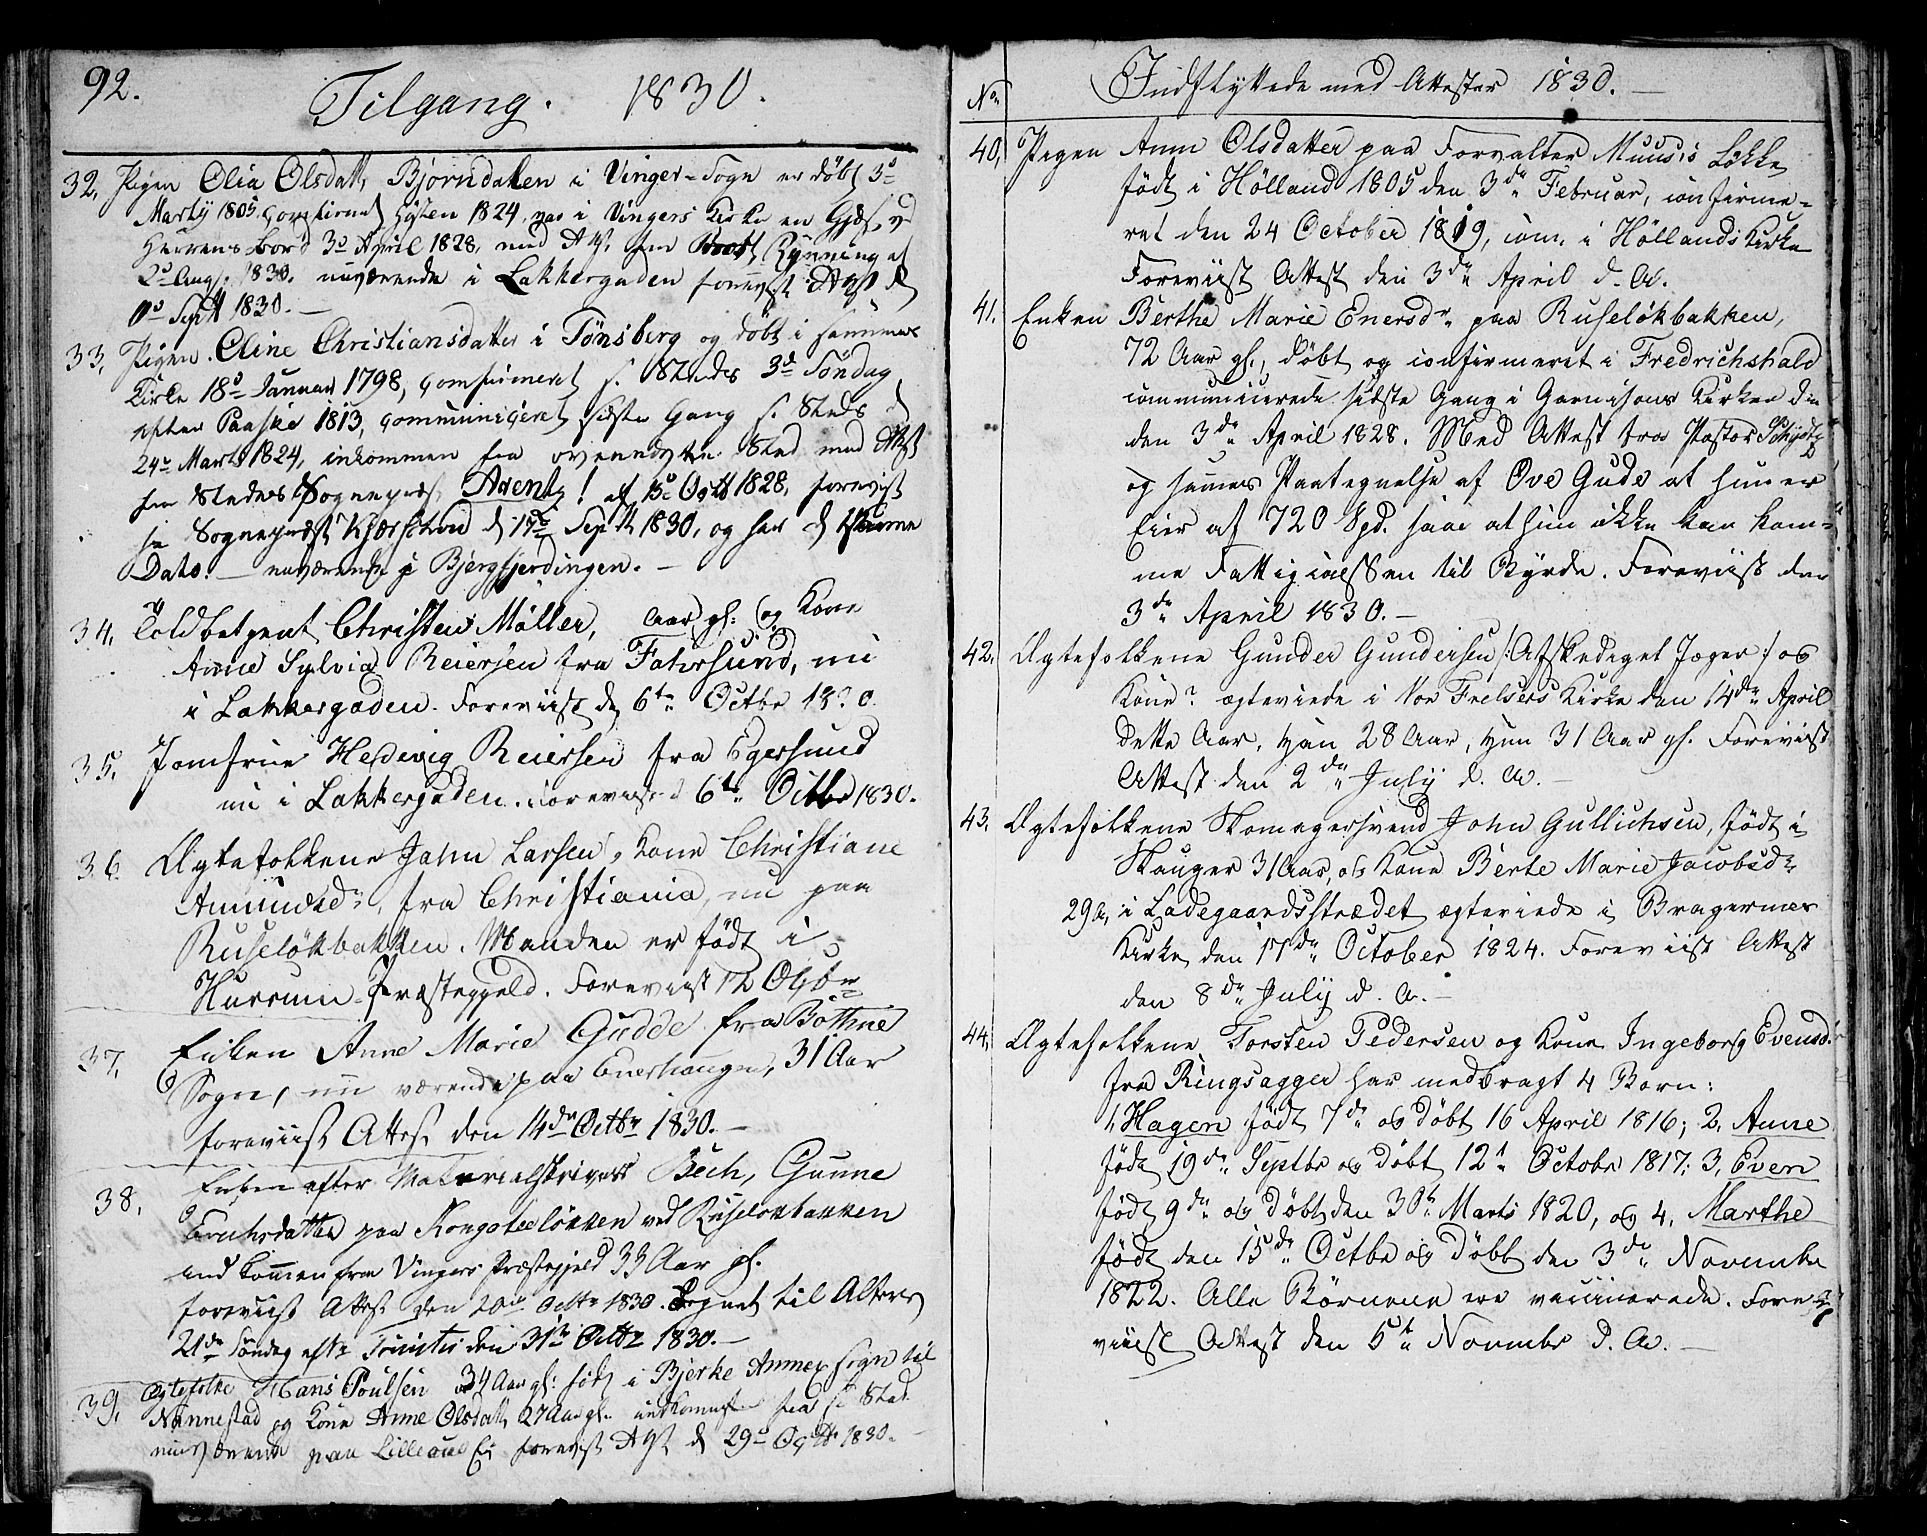 92.
Tilgang. 1830.
32. Pigen Olia Olsdatt, Bjørndalen i Vinger-Sogn er døbt 3d
Martij 1805 Confirmet Høsten 1824, var i Vingers Kirke en Gjæst ved
Herrens Bord 3d April 1828, med Att. fra
2d Aug. 1830. nuværende i Lakkergaden forevist Att. d
Sept 1830.
33. Pigen Eline Christiansdatter i Tønsberg og døbt i samme
Kirke 18d Januar 1798, Confirmeret s. Steds 3d Søndag
efter Paaske 1813, Communiceret sidste Gang s. Steds d
24d Marts 1824, inkommen fra ovennævnte Sted med Att.
fra Stedets Sognepræst, Arentz! af 15d Octb 1828, forevist
Sognepræst Kjærschow d 17d Septb 1830, og her d samme
Dato. – nuværende i Bjergfjerdingen. –
34. Toldbetjent Christen Møller, Aar gl: og Kone
Anne Sylvia Reiersen fra Fahrsund, nu
i Lakkergaden. Foreviist d 6te Octbr 1830.
35. Jomfrue Hedevig Reiersen fra Egersund
nu i Lakkergaden. foreviist d 6te Octbr 1830.
36. Ægtefolkene John Larsen, Kone Christiane
Amundsdr, fra Christiania, nu paa
Ruseløkbakken. Manden er født i
Hurrum Præstegjeld. Foreviist 12 Octbr
37. Enken Anne Marie Gudde fra Bothne
Sogn, nu værende paa Enerhaugen, 31 Aar
foreviist Attest den 14de Octbr 1830. –
38. Enken efter Materialskriver Bech, Gunne
paa Kongsteeløkken ved Ruseløkbakken
indkommen fra Vingers Præstegjeld 33 Aar gl.
foreviist Attest den 20de Octbr 1830. Tegnet til Alters
21de Søndag efter Trinitis den 31te Octbr 1830. –
39. Ægtefolke Hans Poulsen 34 Aar gl: født i Bjerke Annex Sogn til
Nannestad og Kone Anne Olsdatt, 27 Aar gl. indkommen fra s. Sted
nuværende paa Lilleoue Ei forevist Att. d 29d Octb 1830.
No. Indflyttede med Attester 1830. –
40, Pigen Anne Olsdatter paa Forvalter Muus's Løkke
født i Hölland 1805 den 3de Februar, confirme-
ret den 24 October 1819, com. i Höllands Kirke
Foreviist Attest den 3de April d. A.
41. Enken Berthe Marie Enersdr. paa Ruseløkbakken,
72 Aar gl., døbt og confirmeret i Fredrichshald
communicerede sidste Gang i Garnisons Kirken den
den 3de April 1828. Med Attest fra Pastor Schydtz
og sammes Paategnelse af Ove Gude at hun er
Eier af 720 Spd. saa at hun ikke kan kom-
me Fattigcassen til Byrde. Foreviist den
3de April 1830. –
42. Ægtefolkene Gunder Gundersen /: Afskediget Jæger :/ og
Kone? ægteviede i Vor Frelsers Kirke den 14de April
dette Aar, han 28 Aar, hun 31 Aar gl. Foreviist
Attest den 2de July d. A. –
43. Ægtefolkene Skomagersvend John Gullichsen, født i
Skauger 31 Aar, og Kone Berte Marie Jacobsdr
29 A, i Ladegaardsstrædet ægteviede i Bragernes
Kirke den 17de October 1824. Foreviist Attest
den 8de July d. A. –
44. Ægtefolkene Torsten Pedersen og Kone Ingeborg Evensd.
fra Ringsagger har medbragt 4 Børn:
1, Hagen født 7de og døbt 16 April 1816; 2, Anne
født 19de Septbr og døbt 12te Octobr 1817; 3, Even
født 9de og døbt den 30te Marts 1820, og 4, Marthe
født den 15de Octbr og døbt den 3de Novembr
1822. Alle Børnene ere vaccinerede. Fore-
viist Attest den 5te Novembr d. A. –